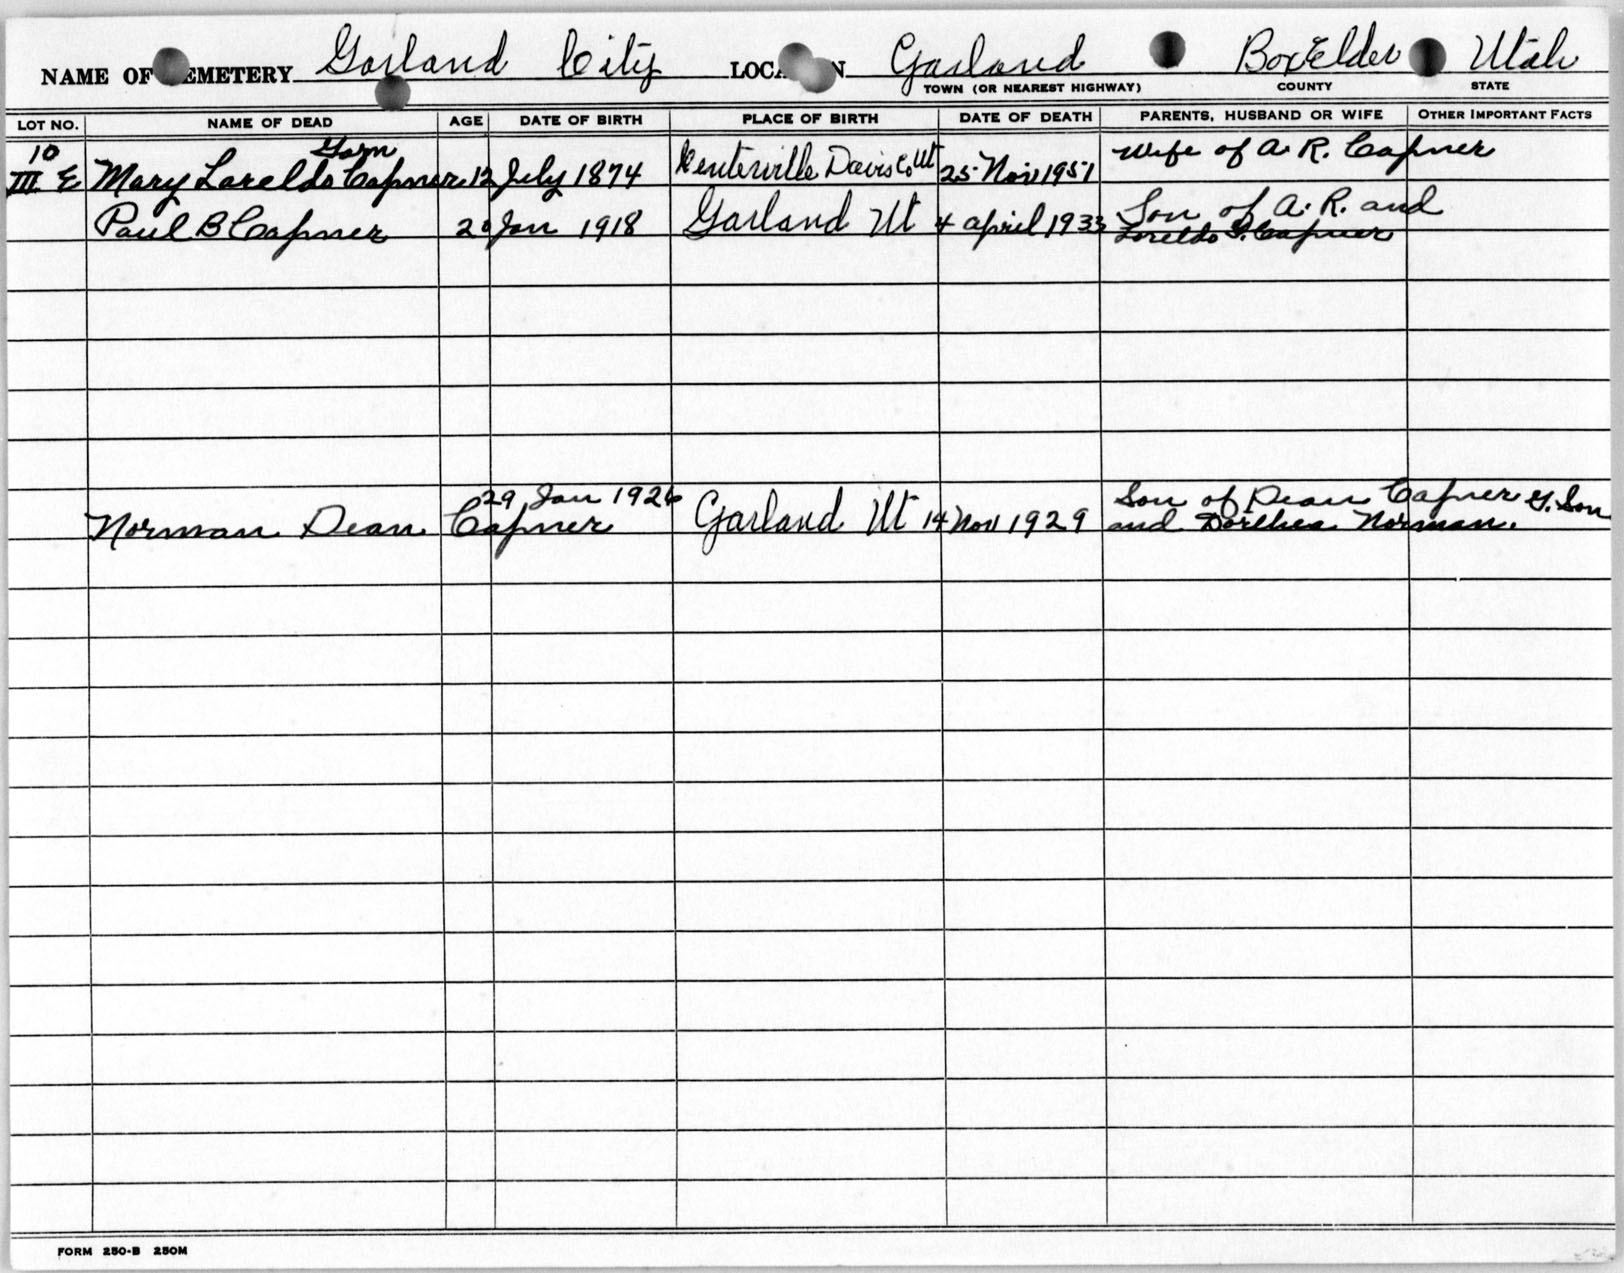 NAME OF CEMETERY Garland City LOCATION Garland BoxElder Utah
TOWN (OR NEAREST HIGHWAY) COUNTY STATE
LOT NO. NAME OF DEAD AGE DATE OF BIRTH PLACE OF BIRTH DATE OF DEATH PARENTS, HUSBAND OR WIFE OTHER IMPORTANT FACTS
10 Garn
III E Mary Lareldo Capner 12 July 1874 Centerville Davis Co Ut 25 Nov 1951 Wife of A. R. Capner
Paul B Capner 20 Jan 1918 Garland Ut 4 April 1933 Son of A. R. and
Loreldo G. Capner
29 Jan 1926 Son of Dean Capner G. Son
Norman Dean Capner Garland Ut 14 Nov 1929 and Dorthea Norman.
FORM 250-B 250M